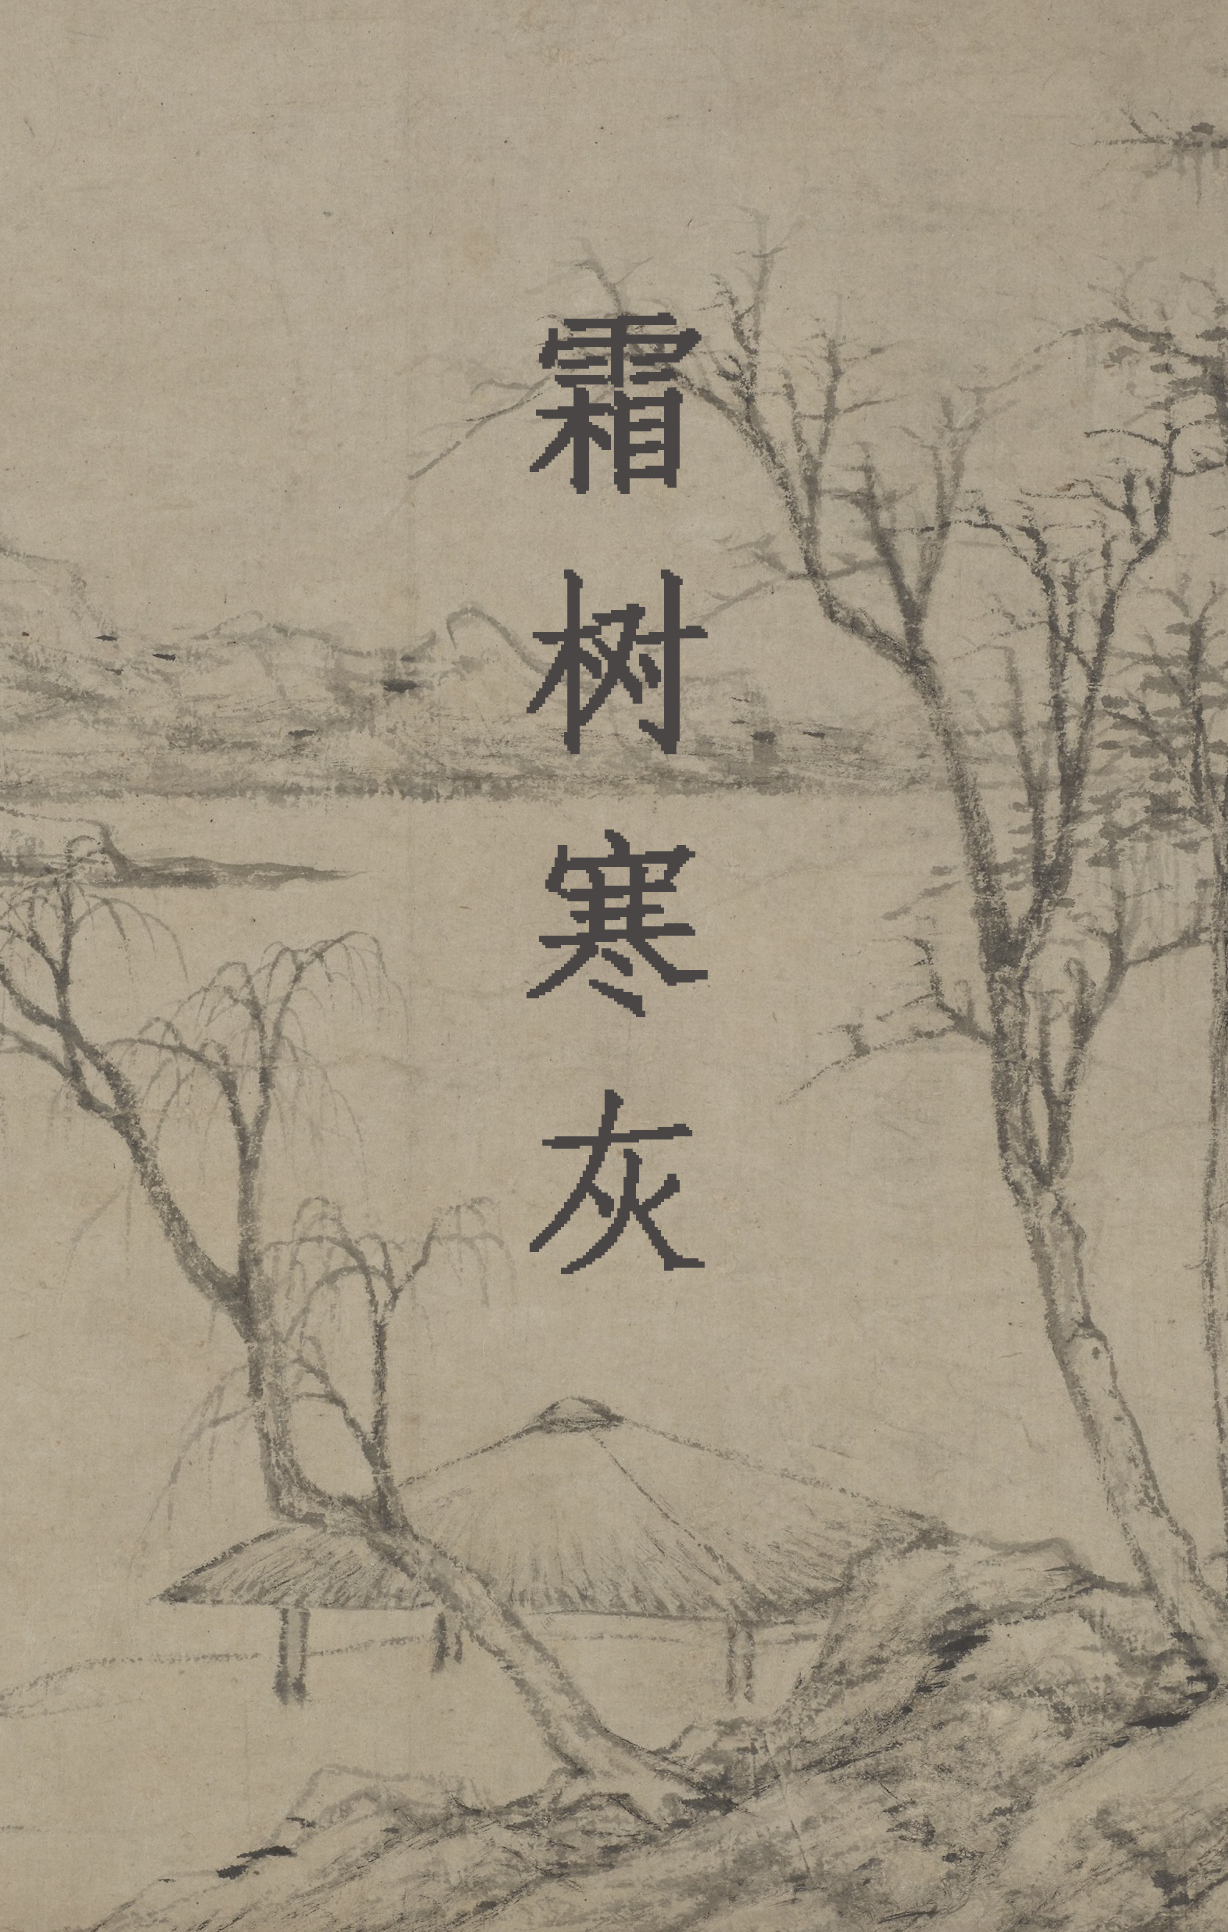 霜树寒灰